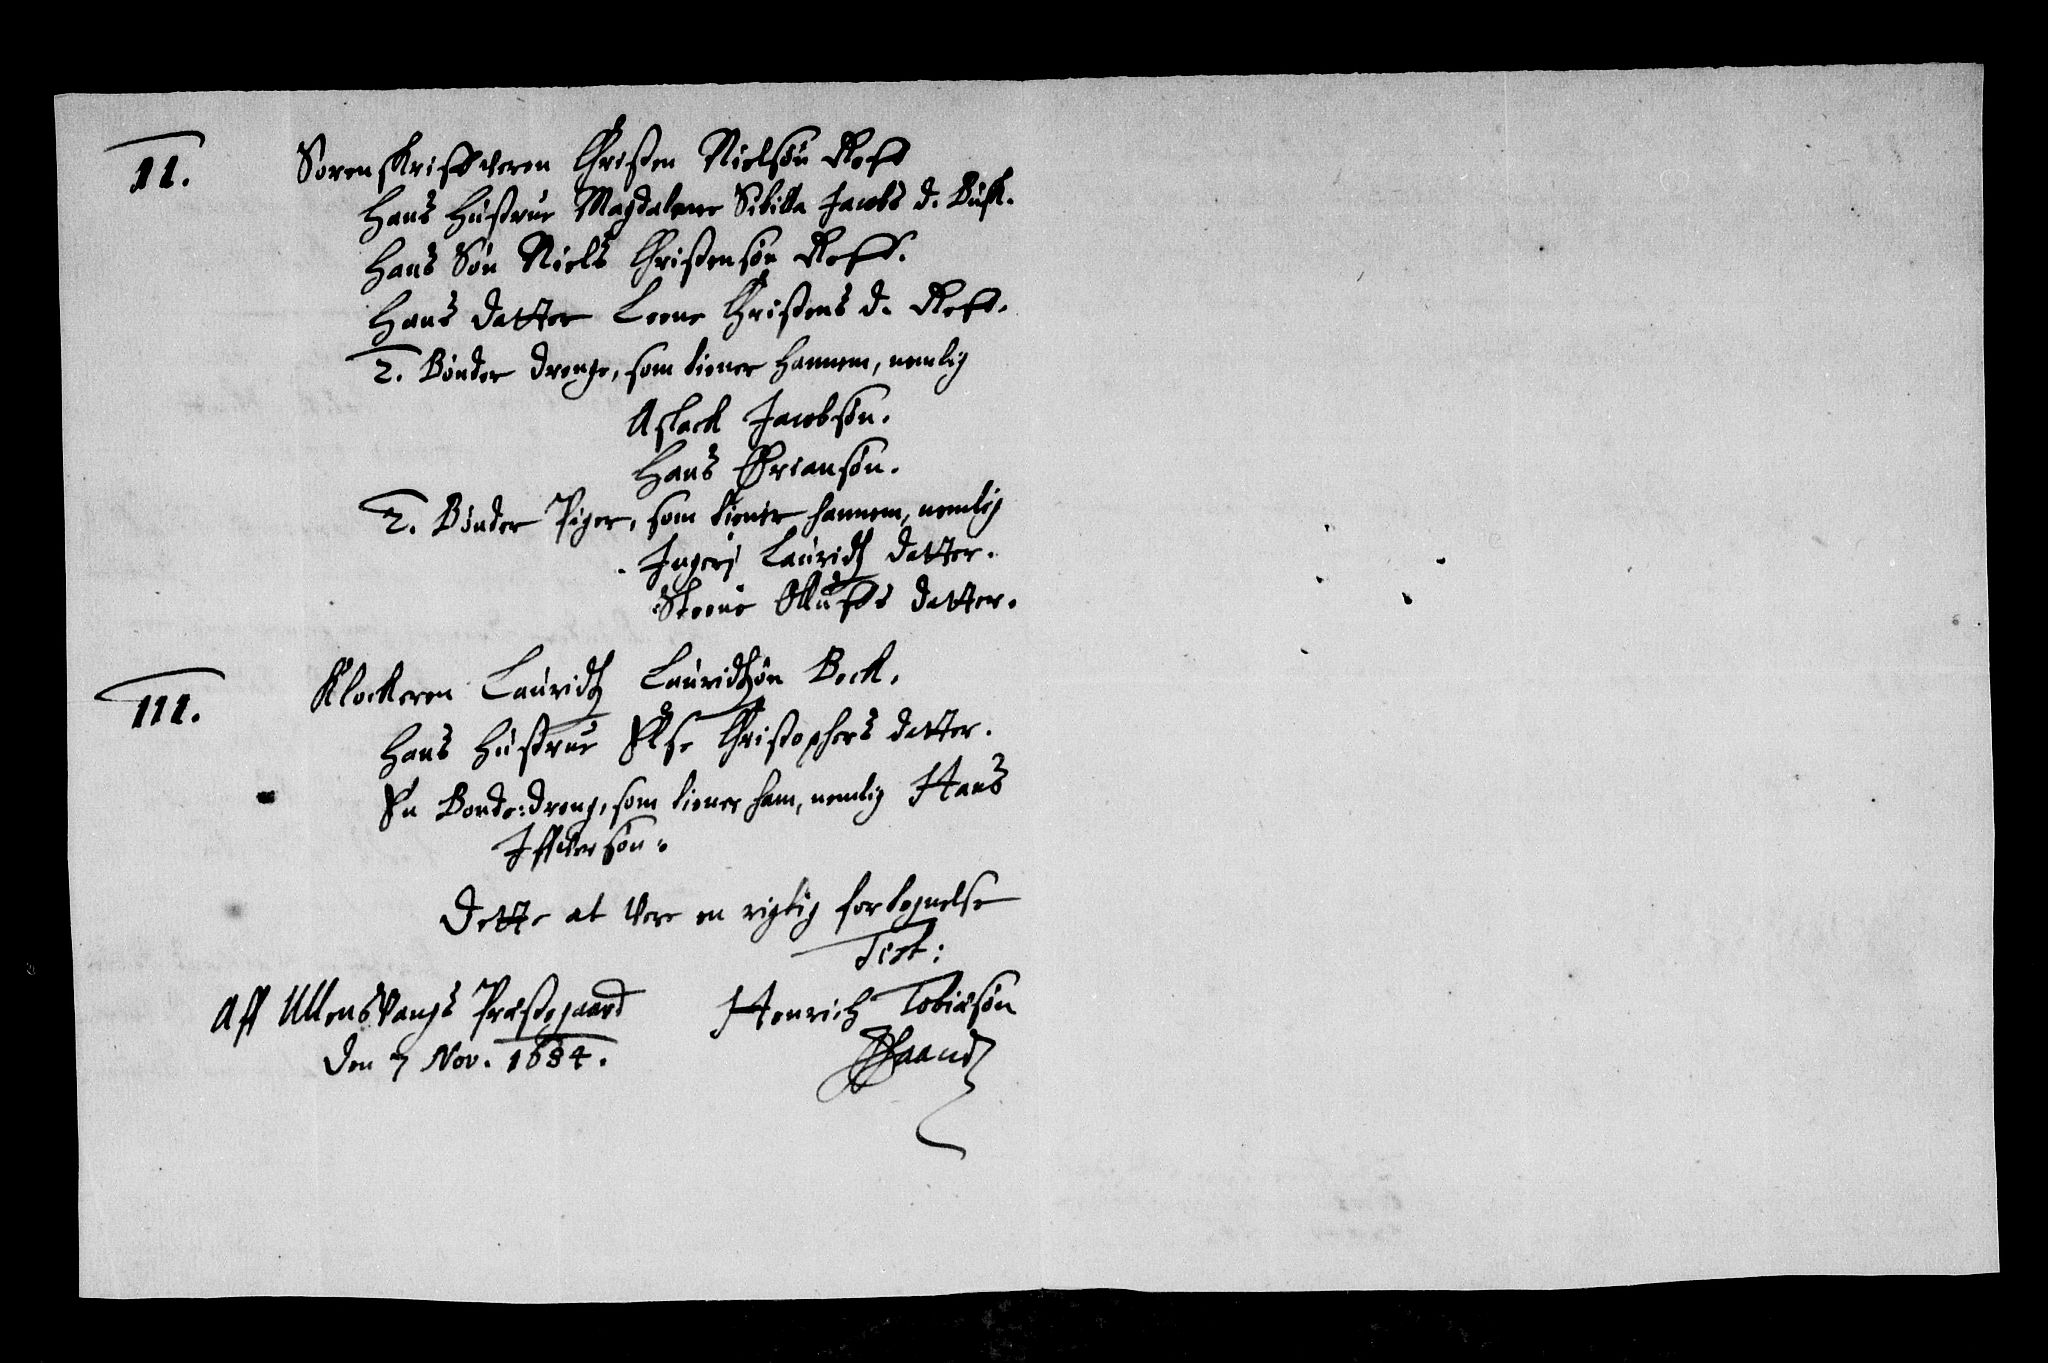 II.
Sorenskriffveren Christen Nielsøn Reff
Hans Hustrue Magdalene Sibilla Jacobs d. Busk.
Hans Søn Niels Christensøn Reff.
Hans datter Leene Christens d. Reff.
2. Bønder drenge, som tiener hannem, nemlig
Aslack Jacobsøn.
Hans Øriansøn.
2. Bønder Piger, som tiener hannem, nemlig
Ingerj Lauridtz datter.
datter.
III.
Klockeren Lauridtz Lauridtzøn Beck.
Hans Hustrue Else Christophers datter.
En Bonde:dreng, som tiener ham, nemlig Hans
Iffversøn.
Dette at vere en rigtig fortegnelse
Test:
Aff Ullensvangs Præstegaard
Den 7 Nov. 1684.
Henrich Tobiasøn